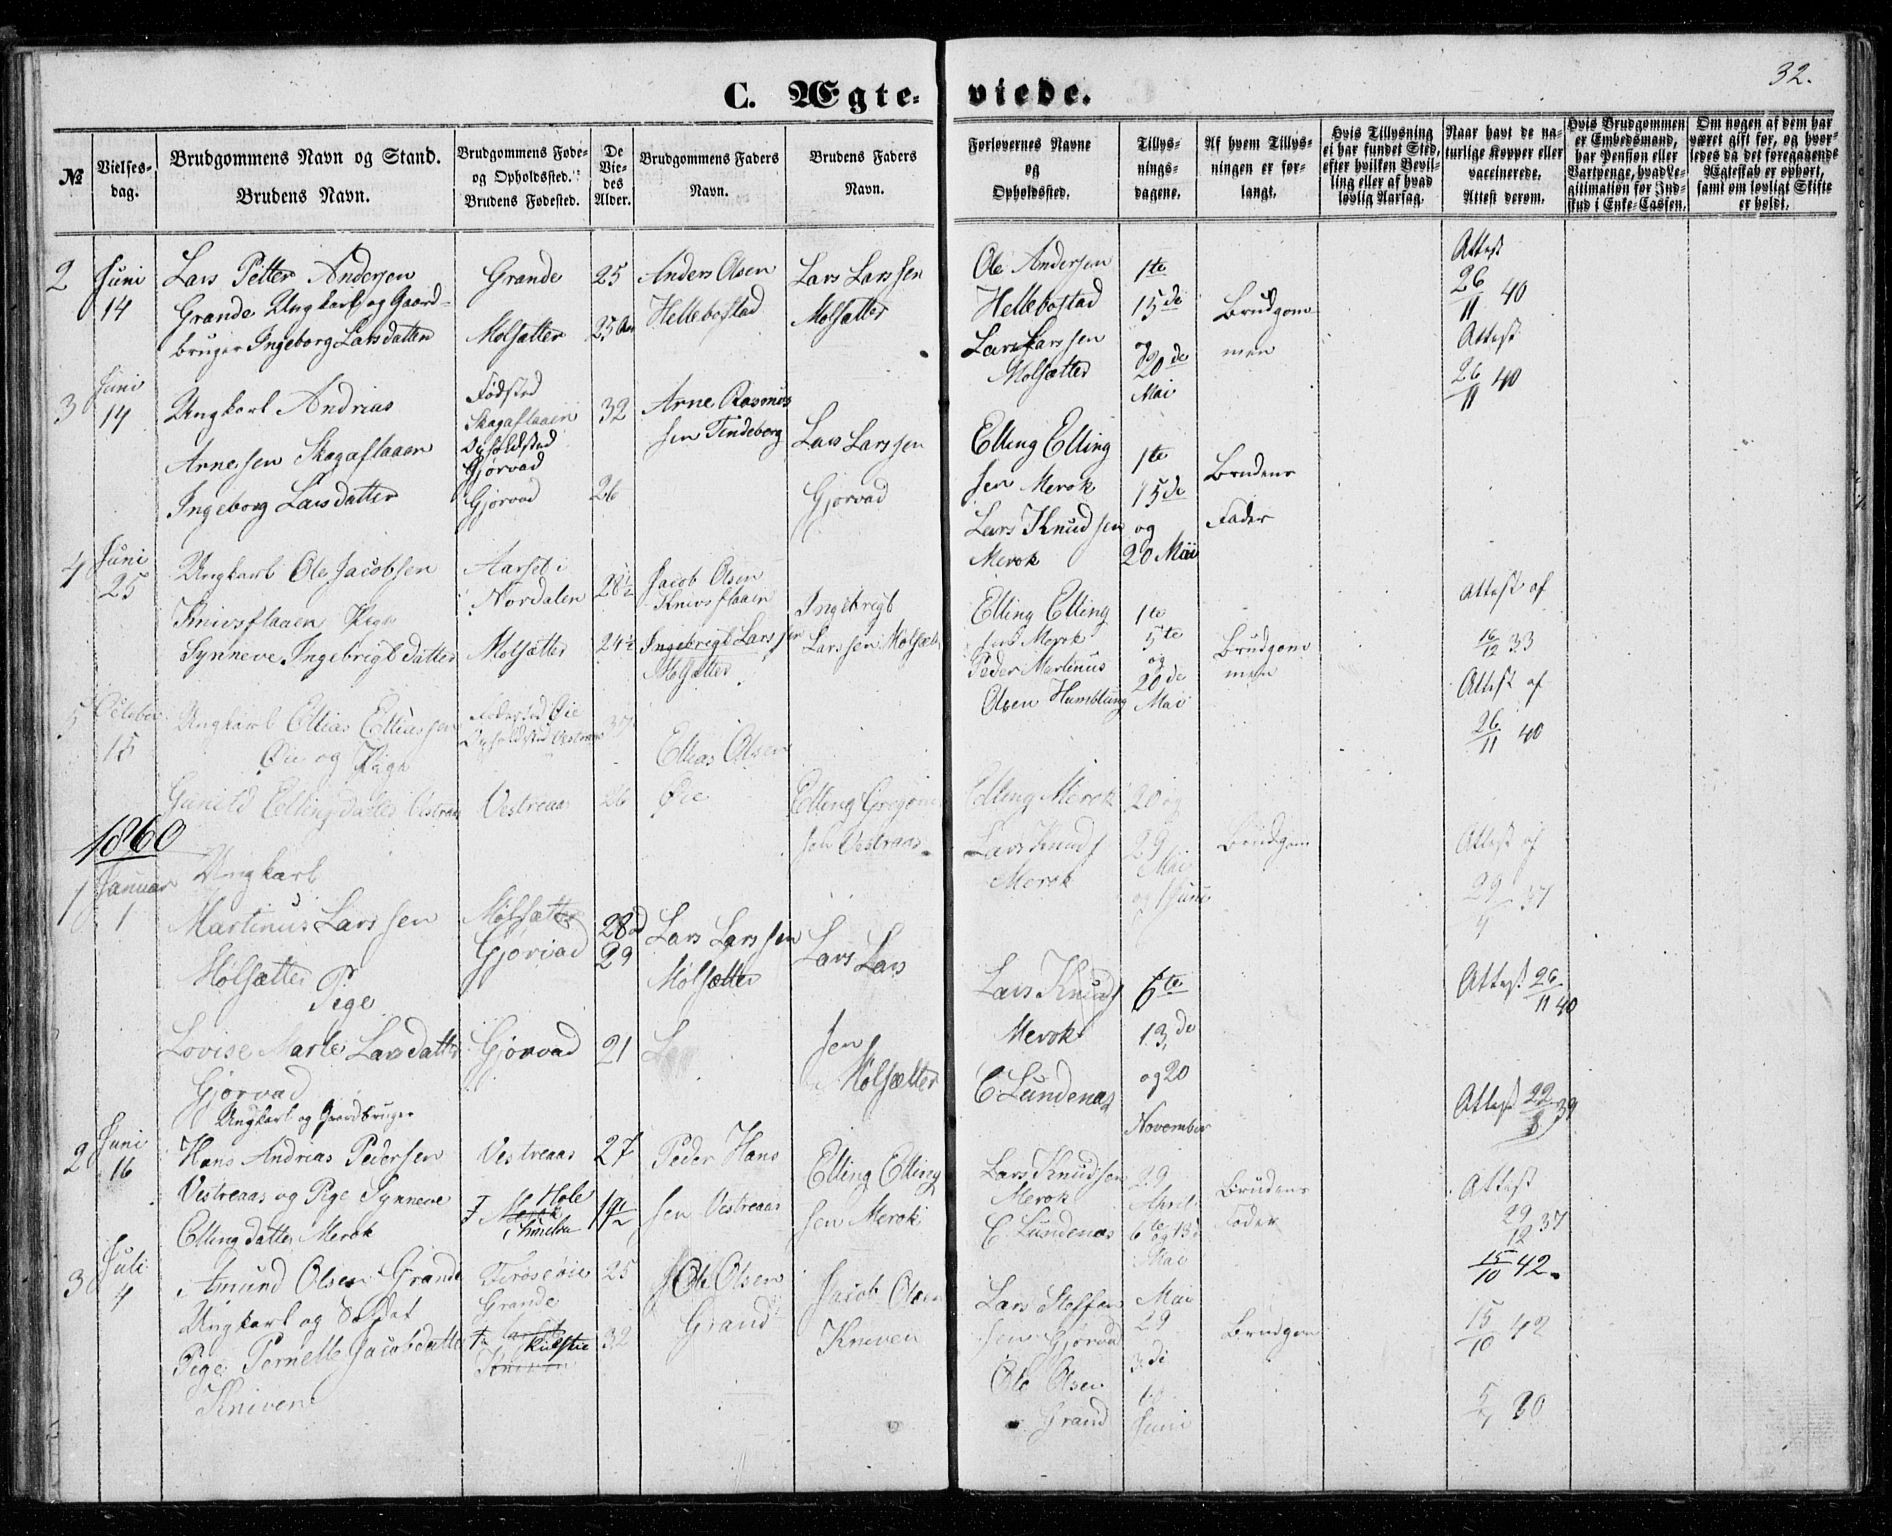 32.
C. Ægteviede.
№
Vielsesdag.
Brudgommens Navn og Stand.
Brudens Navn.
Brudgommens Føde- og Opholdssted.
Brudens Fødested.
De Viedes Alder.
Brudgommens Faders Navn.
Brudens Faders Navn.
Forlovernes Navne og Opholdssted.
Tillysningsdagene.
Af hvem Tillysningen er forlangt.
Hvis Tillysning ei har fundet Sted, efter hvilken Bevilling eller af hvad lovlig Aarsag.
Naar havt de naturlige Kopper eller vaccinerede. Attest derom.
Hvis Brudgommen er Embedsmand, har Pension eller Vartpenge, hvad Legitimation for Indskud i Enke-Cassen.
Om nogen af dem har været gift før, og hvorledes da det foregaaende Ægteskab er ophørt, samt om lovligt Skifte er holdt.
2 Juni 14
Lars Petter Andersen
Grande Ungkarl og Gaard-
bruger Ingeborg Larsdatter
Grande
Molsætter
25
25 Aar
Anders Olsen
Hellebostad
Lars Larssen
Molsætter
Ole Andersen
Hellebostad
Lars Larssen
Molsætter
1te
15de
og
20de
Mai
Brudgom
men
Attest
26/11 40
Attest
26/11 40
3 Juni 14
Ungkarl Andrias
Arnesen Skagaflaaen
Ingeborg Larsdatter
Fødsted
Skagaflaaen
Opholdsted
Gjørvad
Gjørvad
32
26
Arne Rasmus
sen Tindeborg
Lars Larssen
Gjørvad
Elling Elling
sen Merok
Lars Knudsen
Merok
1te
15de
og
20 Mai
Brudens
Fader
4 Juni 25
Ungkarl Ole Jacobsen
Knivsflaaen Pige
Synneve Ingebrigtdatter
Aarset i
Nordalen
Molsætter
28½
24½
Jacob Olsen
Knivsflaaen
Ingebrigt Larssen
Molsætter
Ingebrigt
Larssen Molsæt
Elling Elling
sen Merok
Peder Martinus
Olsen Humblung
1te
5te
og
20de
Mai
Brudgom
men
Attest af
16/12 33
Attest af
26/11 40
5 October 15
Ungkarl Ellias Elliassen
Øie og Pige
Gunild Ellingdatter Vestraas
Fødested Øie
Opholdsted Vestraas
Vestreaas
37
26
Ellias Olsen
Øie
Elling Gregorius
sen Vestraas
Elling Merok
Lars Knuds
Merok
20 og
29
Mai
og 1 Juni
Brudgom
Attest af
29/9 37
1860
1 Januar 1
Ungkarl
Martinus Larssen
Molsætter
Pige
Lovise Marte Larsdatter
Gjørvad
Molsætter
Gjørvad
Gjørvad
28
29
21
Lars Larssen
Molsætter
Lars Lars
sen
Molsætter
Lars Knuds
Merok
E Lundenas
6te
13de
og 20
November
Attest 26/11 40
Attest 22/8 39
2 Juni 16
Ungkarl og Gaardbruger
Hans Andrias Pedersen
Vestreaas og Pige Synneve
Elling datter Merok
Vestreaas
Hole
Merok
27
19½
Peder Hans
sen Vestreaas
Elling Elling
sen Merok
Lars Knudsen
Merok
E Lundenas
29
April
6te og 13
Mai
Brudens
Fader
Attest
29/12 37
15/10 42.
3 Juli 4
Amund Olsen Grande
Ungkarl og Soldat
Pige Pernelle Jacobsdatter
Kniven
Grande
Kniven
25
32
Ole Olsen
Grand
Jacob Olsen
Kniven
Lars Steffen
sen Gjørvad
Ole Olsen
Grand
Mai
29
3de
Juni
Brudgom
15/10 42